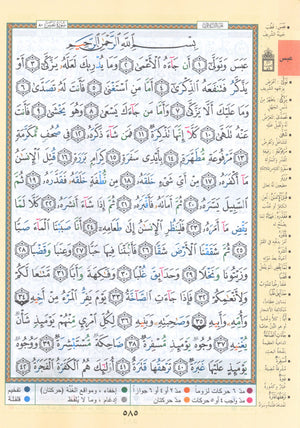 بِسْمِ اللَّهِ الرَّحْمَٰنِ الرَّحِيمِ
عَبَسَ وَتَوَلَّىٰ ١ أَن جَاءَهُ الْأَعْمَىٰ ٢ وَمَا يُدْرِيكَ لَعَلَّهُ يَزَّكَّىٰ ٣ أَوْ
يَذَّكَّرُ فَتَنفَعَهُ الذِّكْرَىٰ ٤ أَمَّا مَنِ اسْتَغْنَىٰ ٥ فَأَنتَ لَهُ تَصَدَّىٰ ٦
وَمَا عَلَيْكَ أَلَّا يَزَّكَّىٰ ٧ وَأَمَّا مَن جَاءَكَ يَسْعَىٰ ٨ وَهُوَ يَخْشَىٰ ٩ فَأَنتَ
عَنْهُ تَلَهَّىٰ ١٠ كَلَّا إِنَّهَا تَذْكِرَةٌ ١١ فَمَن شَاءَ ذَكَرَهُ ١٢ فِي صُحُفٍ مُّكَرَّمَةٍ
١٣ مَّرْفُوعَةٍ مُّطَهَّرَةٍ ١٤ بِأَيْدِي سَفَرَةٍ ١٥ كِرَامٍ بَرَرَةٍ ١٦ قُتِلَ الْإِنسَانُ
مَا أَكْفَرَهُ ١٧ مِنْ أَيِّ شَيْءٍ خَلَقَهُ ١٨ مِن نُّطْفَةٍ خَلَقَهُ فَقَدَّرَهُ ١٩ ثُمَّ
السَّبِيلَ يَسَّرَهُ ٢٠ ثُمَّ أَمَاتَهُ فَأَقْبَرَهُ ٢١ ثُمَّ إِذَا شَاءَ أَنشَرَهُ ٢٢ كَلَّا لَمَّا
يَقْضِ مَا أَمَرَهُ ٢٣ فَلْيَنظُرِ الْإِنسَانُ إِلَىٰ طَعَامِهِ ٢٤ أَنَّا صَبَبْنَا الْمَاءَ صَبًّا
٢٥ ثُمَّ شَقَقْنَا الْأَرْضَ شَقًّا ٢٦ فَأَنبَتْنَا فِيهَا حَبًّا ٢٧ وَعِنَبًا وَقَضْبًا ٢٨
وَزَيْتُونًا وَنَخْلًا ٢٩ وَحَدَائِقَ غُلْبًا ٣٠ وَفَاكِهَةً وَأَبًّا ٣١ مَّتَاعًا لَّكُمْ
وَلِأَنْعَامِكُمْ ٣٢ فَإِذَا جَاءَتِ الصَّاخَّةُ ٣٣ يَوْمَ يَفِرُّ الْمَرْءُ مِنْ أَخِيهِ ٣٤
وَأُمِّهِ وَأَبِيهِ ٣٥ وَصَاحِبَتِهِ وَبَنِيهِ ٣٦ لِكُلِّ امْرِئٍ مِّنْهُمْ يَوْمَئِذٍ شَأْنٌ
يُغْنِيهِ ٣٧ وُجُوهٌ يَوْمَئِذٍ مُّسْفِرَةٌ ٣٨ ضَاحِكَةٌ مُّسْتَبْشِرَةٌ ٣٩ وَوُجُوهٌ
يَوْمَئِذٍ عَلَيْهَا غَبَرَةٌ ٤٠ تَرْهَقُهَا قَتَرَةٌ ٤١ أُولَٰئِكَ هُمُ الْكَفَرَةُ الْفَجَرَةُ ٤٢
عبس
مدّ ٦ حركات لزوماً مدّ ٢ أو ٤ أو ٦ جوازاً إخفاء، ومواقع الغنّة (حركتان) تفخيم
مدّ واجب ٤ أو ٥ حركات مدّ حركتان إدغام، وما لا يُلفَظ قلقلة
٥٨٥